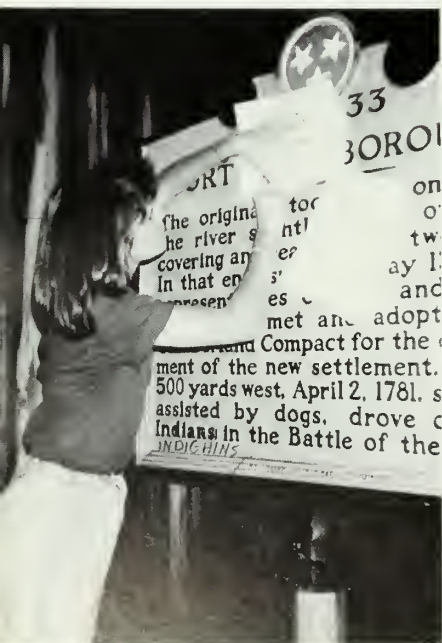 33
ORT BOROU
The origina too on
he river s ntl o
covering an ea tw
In that en s' ay 1
epresent es and
met and adopt
rland Compact for the
ment of the new settlement.
500 yards west, April 2, 1781, s
assisted by dogs, drove
Indians in the Battle of the
INDIGHINS